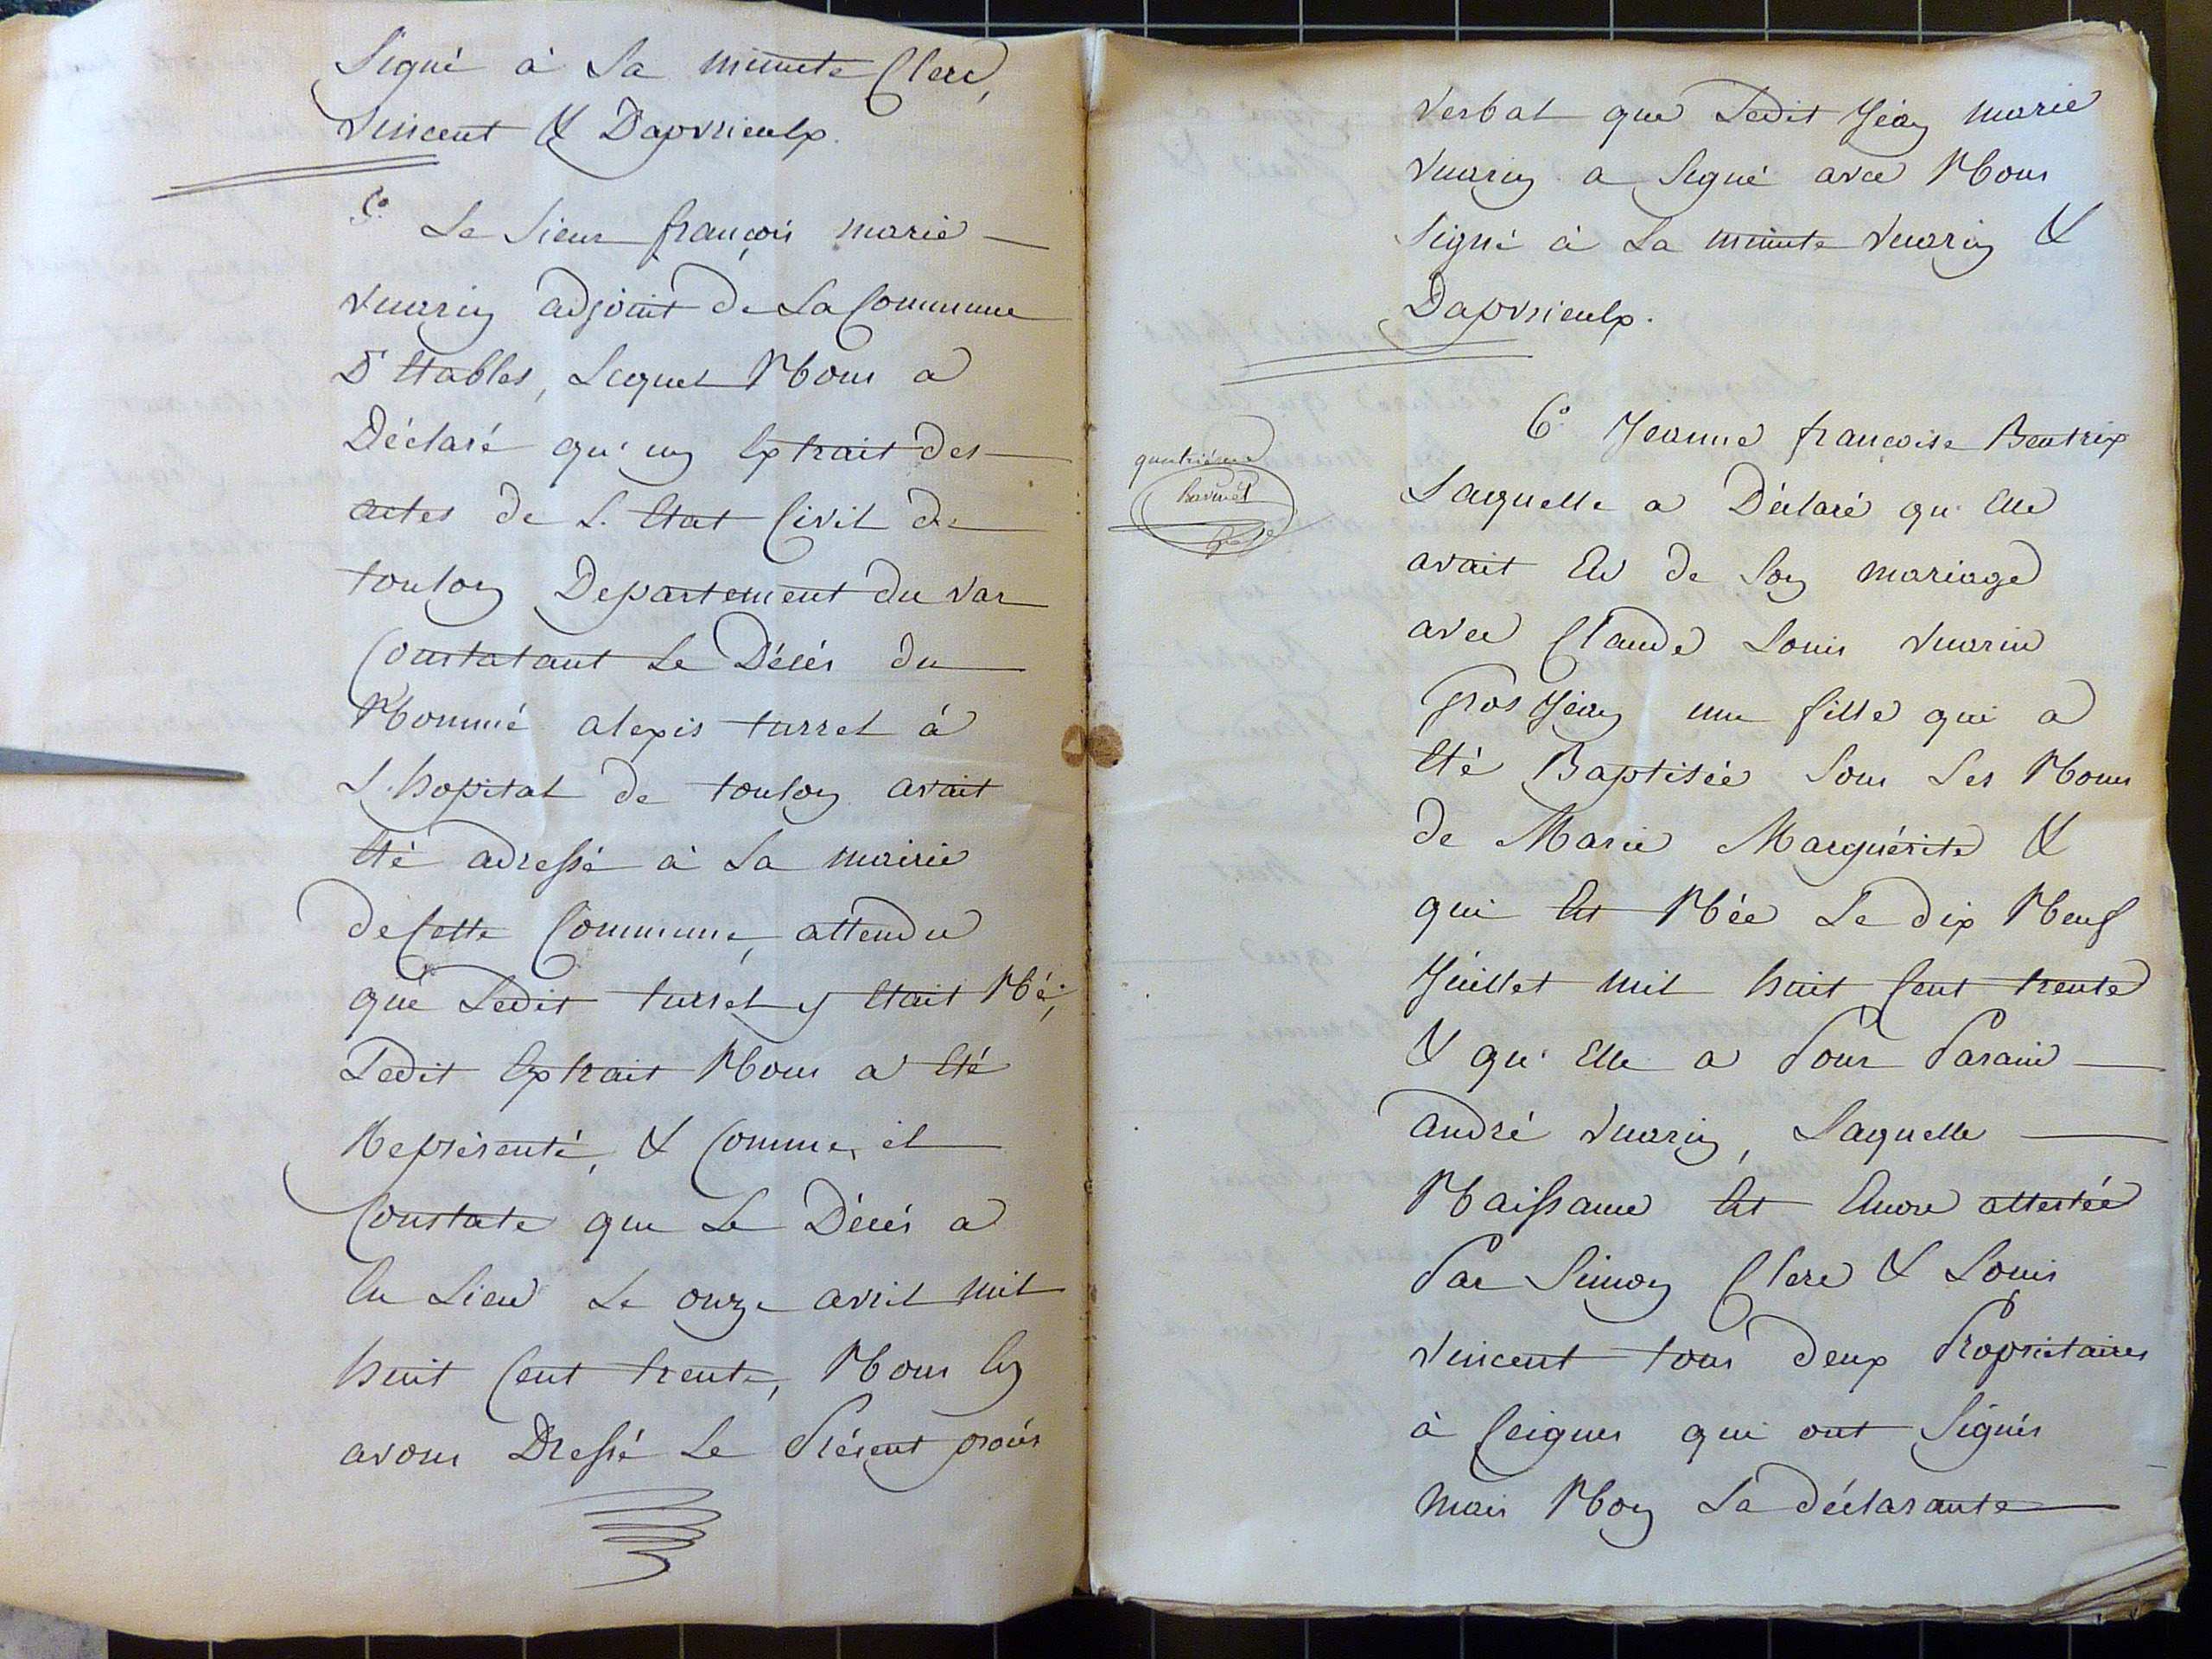 Signé à La minute Clerc,
Vincent & Dapvrieulx.
5.° Le Sieur françois marie
Vuarin adjoint de La Commune
D'Etables, Lequel Nous a
Déclaré qu'un Extrait des
actes de L'Etat Civil de
toulon Departement du Var
Constatant Le Décés du
Nommé alexis turrel à
L'hopital de toulon avait
Eté adressé à La mairie
de Cette Commune, attendu
que Ledit turrel y Etait Né;
Ledit Extrait Nous a Eté
Représenté, & Comme, il
Constate que Le Décés a
Eu Lieu Le onze avril mil
huit Cent trente, Nous En
avons Dressé Le Présent procés
verbal que Ledit Jean marie
Vuarin a Signé avec Nous
Signé à La minute Vuarin &
Dapvrieulx.
6.° Jeanne françoise Beatrix
Laquelle a Déclaré qu'Elle
avait Eu de Son mariage
avec Claude Louis Vuarin
Gros Jean une fille qui a
Eté Baptisée Sous Les Noms
de Marie Marguérite &
qui Est Née Le dix Neuf
Juillet mil huit Cent trente
& qu'Elle a Pour Parain
andré Vuarin, Laquelle
Naissance Est Encore attestée
Par Simon Clerc & Louis
Vincent tous deux Propriétaires
à Ceignes qui ont Signés
mais Non La déclarante
quatrième